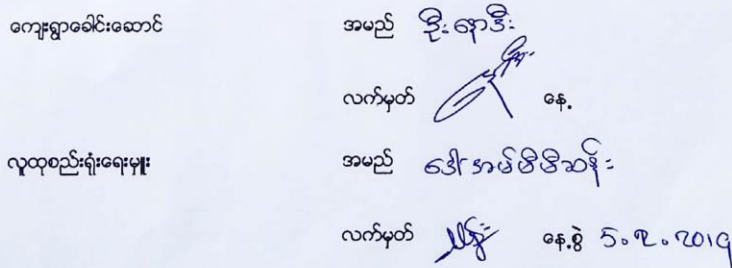 ကျေးရွာခေါင်းဆောင် အမည် ဦးနာဒီး
လက်မှတ် နေ့
လူထုစည်းရုံးရေးမှူး အမည် ဒေါ်အမ်မီမီဆန်း
လက်မှတ် နေ့စွဲ 5.၇.2019